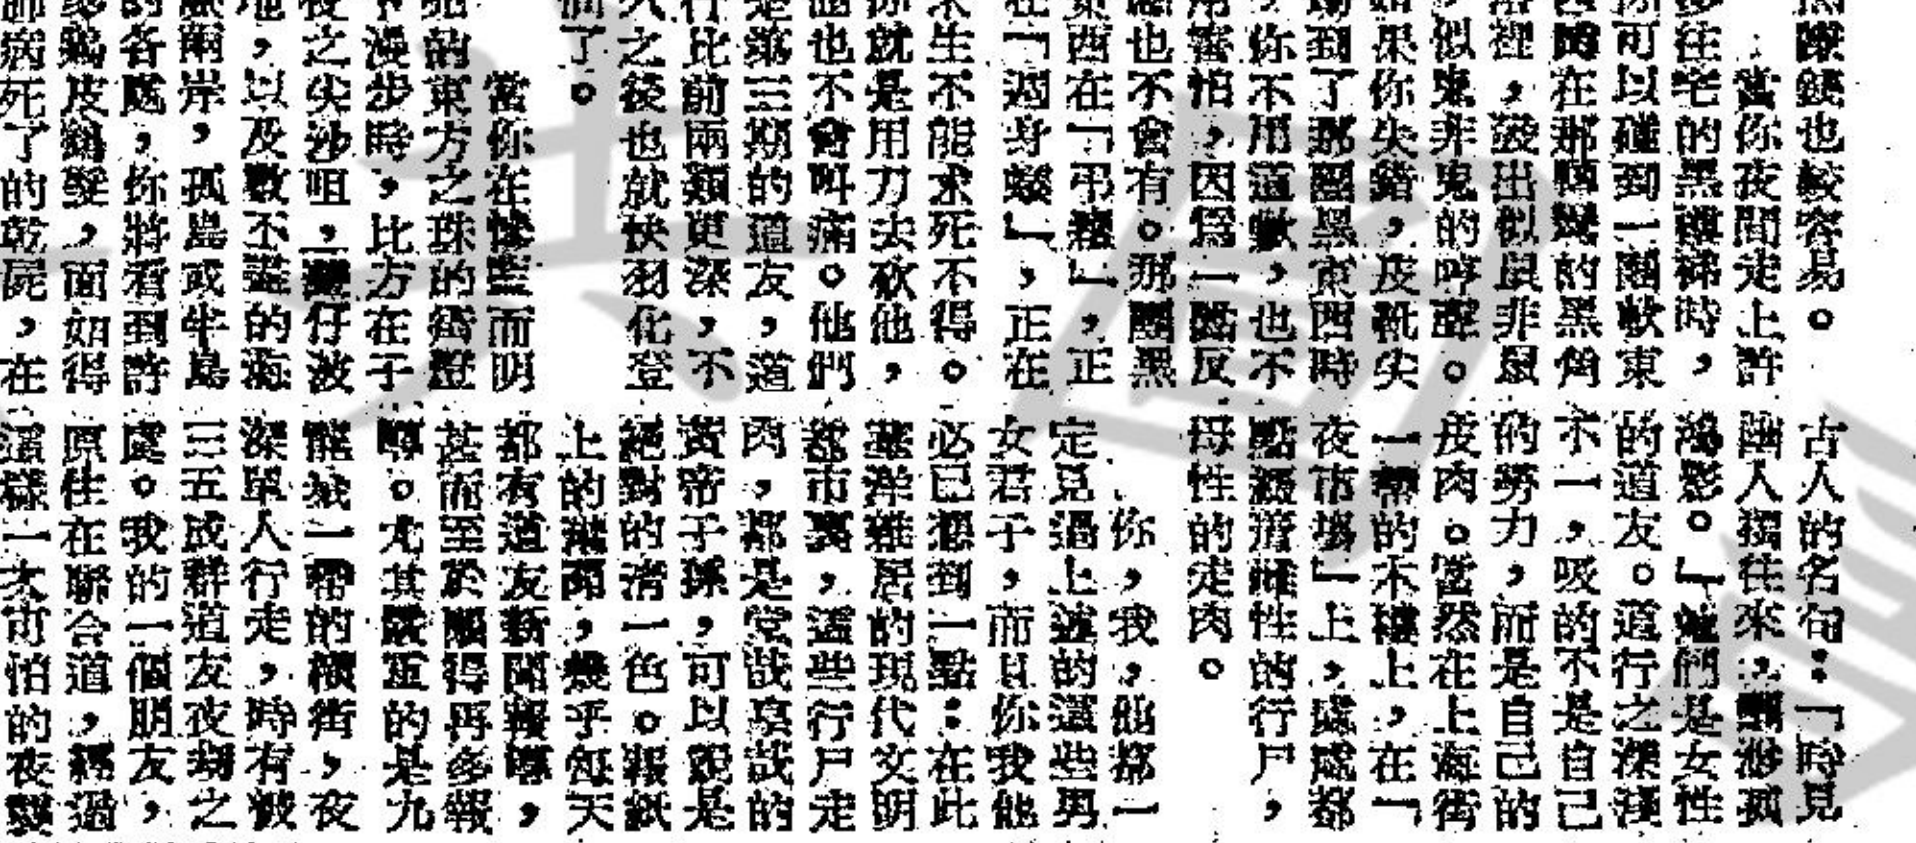 錢也較容易。
當你夜間走上許
多住宅的黑樓梯時，
你可以碰到一團軟東
西蹲在那個彎的黑角
落裡，發出似鼠非鼠
，似鬼非鬼的哼聲。
如果你失錯，皮靴尖
踢到了那團黑東西時
，你不用道歉，也不
用害怕，因爲一點反
應也不會有。那團黑
東西在「弔癮」，正
在「週身蟻」，正在
求生不能求死不得。
你就是用刀去砍他，
他也不會叫痛。他們
是第三期的道友，道
行比前兩類更深，不
久之後也就快羽化登
仙了。
當你在而明
亮的東方之珠的街燈
下漫步時，比方在于
夜之尖沙咀，灣仔波
地，以及數不盡的海
兩岸，孤島或半島
的各處，你將看到許
多鷄皮鶴髮，面如得
肺病死了的乾屍，在
古人的名句：「時見
幽人獨往來，飄渺孤
鴻影。」她們是女性
的道友。道行之深淺
不一，吸的不是自己
的勞力，而是自己的
皮肉。當然在上海街
一帶的木樓上，在「
夜市場」上，處處都
點綴着雌性的行尸，
母性的走肉。
你，我，他都一
定見過上述的這些男
女君子，而且你我他
必已想到一點：在此
華洋雜居的現代文明
都市裏，這些行尸走
肉，都是堂哉皇哉的
黃帝子孫，可以說是
絕對的清一色。報紙
上的港聞，幾乎每天
都有道友新聞報導，
甚而至於懶得再多報
導。尤其嚴重的是九
龍城一帶的橫街，夜
深單人行走，時有被
三五成群道友夜劫之
處。我的一個朋友，
原住在聯合道，經過
這樣一次可怕的夜襲